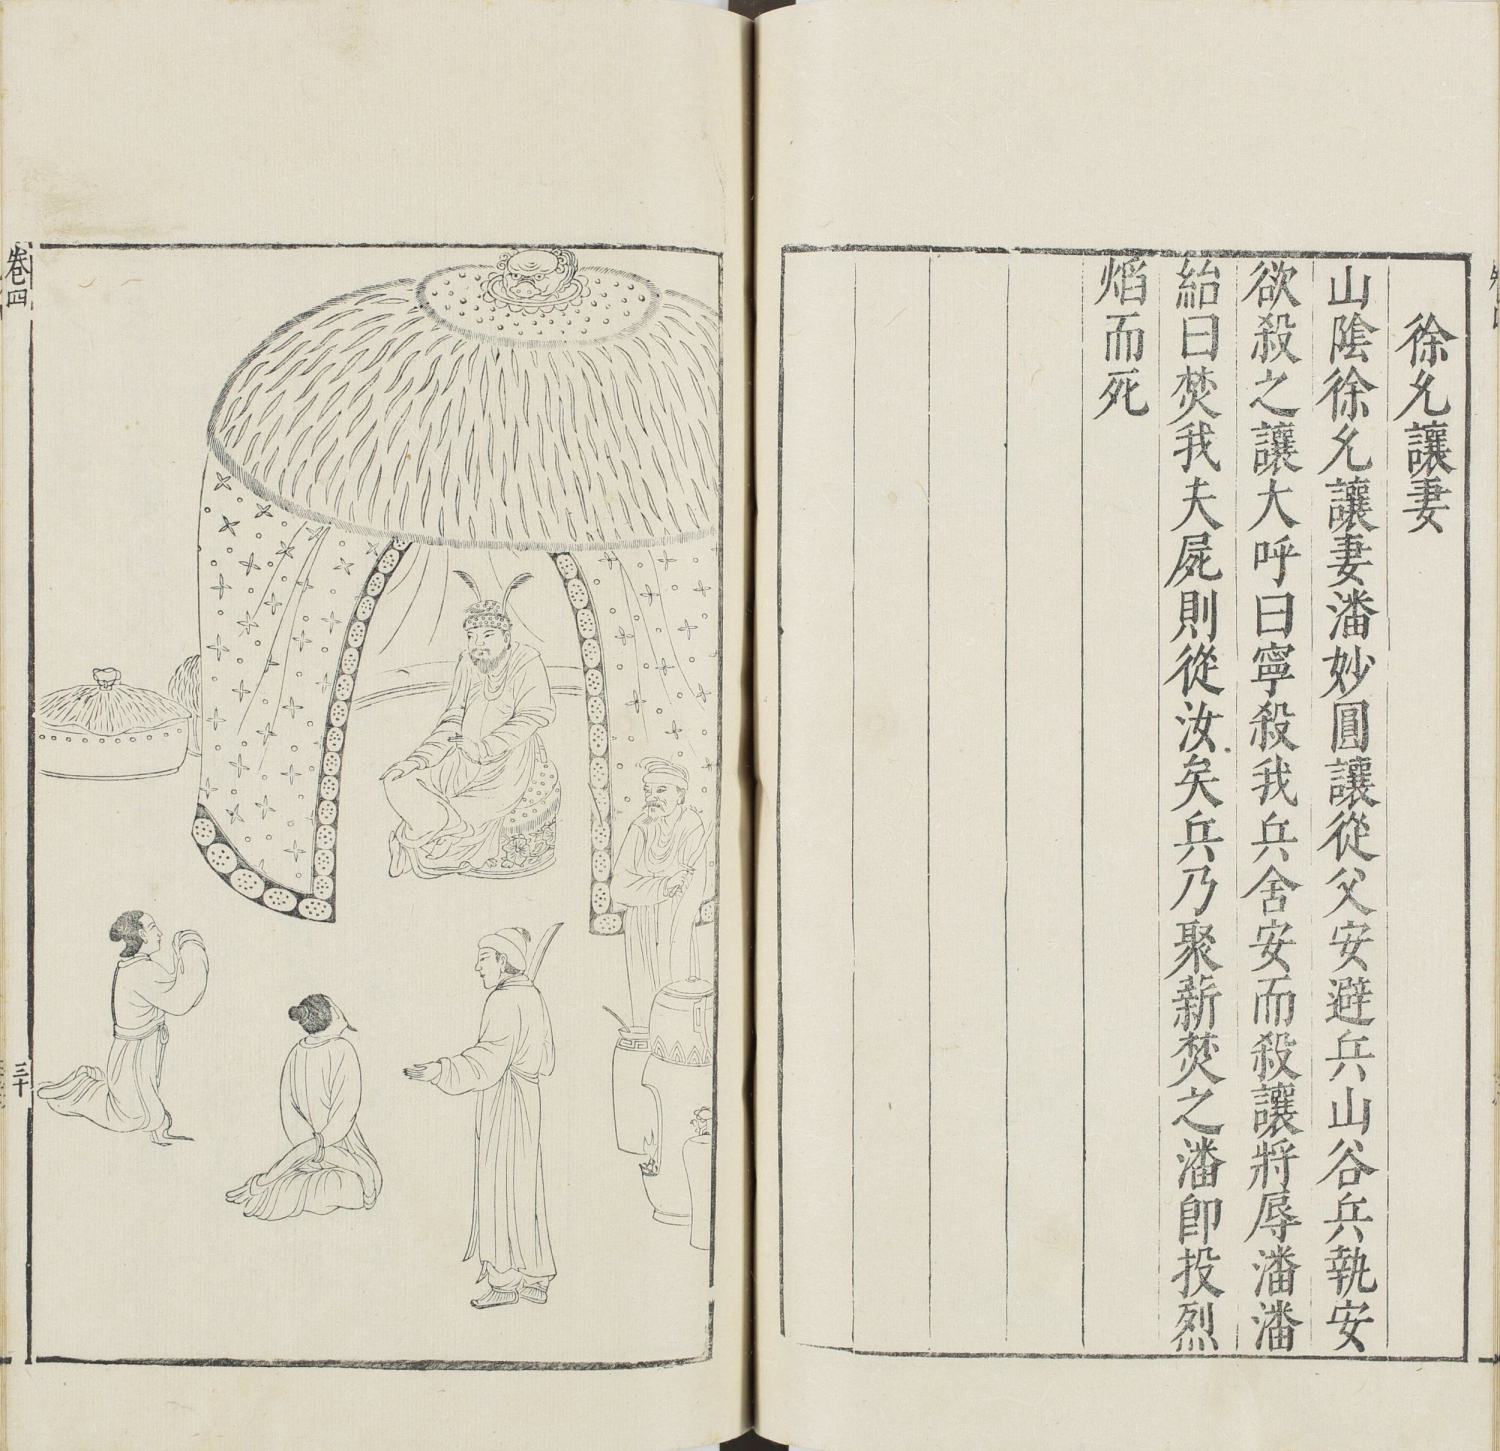 徐允讓妻
山陰徐允讓妻潘妙圓讓從父安避兵山谷兵執安
欲殺之讓大呼曰寧殺我兵舍安而殺讓將辱潘潘
紿曰焚我夫屍則從汝矣兵乃聚薪焚之潘卽投烈
焰而死
卷四
三十